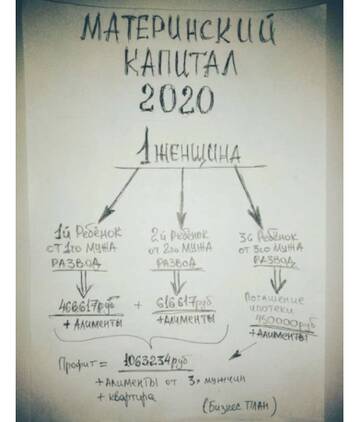 МАТЕРИНСКИЙ
КАПИТАЛ
2020
1 ЖЕНЩИНА
1й Ребёнок
от 1го МУЖА
РАЗВОД
2й Ребёнок
от 2го МУЖА
РАЗВОД
3й Ребёнок
от 3го МУЖА
РАЗВОД
466617руб
+ Алименты
+
616617руб
+Алименты
Погашение
ипотеки
450000руб
+Алименты
Профит = 1063234руб
+ Алименты от 3х мужчин
+ квартира
(Бизнес ПЛАН)